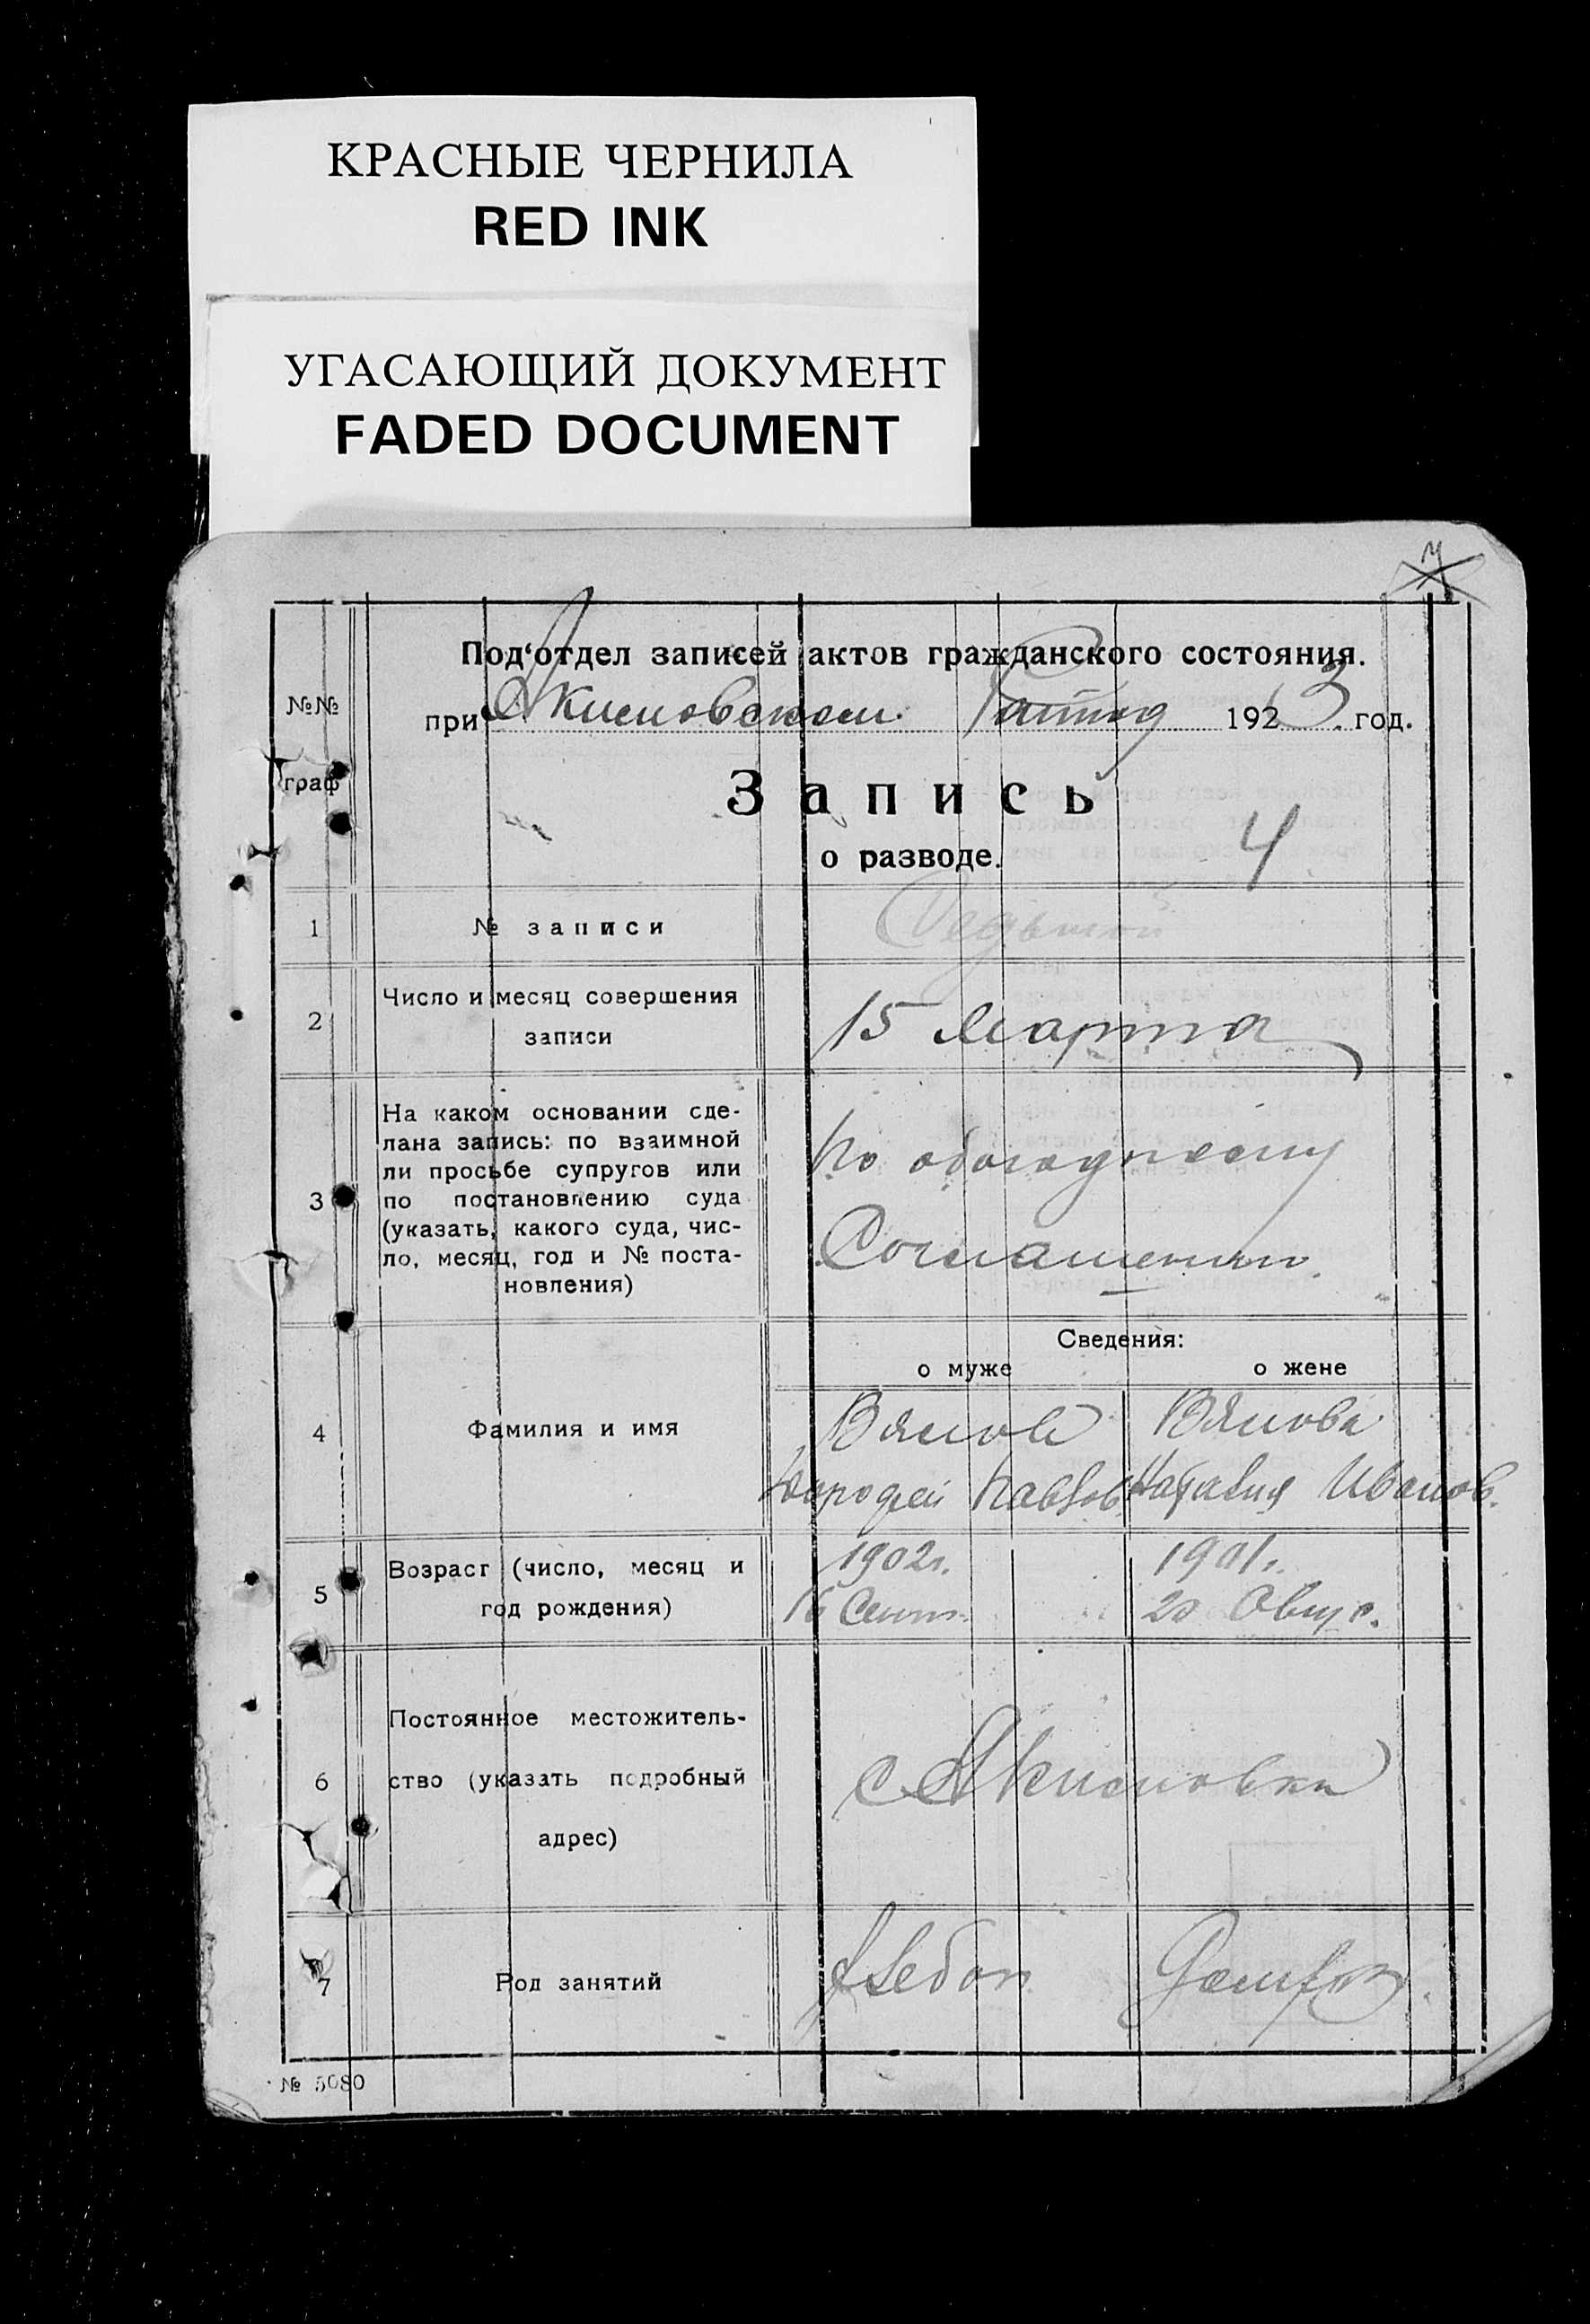 КРАСНЫЕ ЧЕРНИЛА
RED INK
УГАСАЮЩИЙ ДОКУМЕНТ
FADED DOCUMENT
Под‘отдел записей актов гражданского состояния.
№№ граф
при Акимовском 1923 год.
Запись
о разводе. 4
1 № записи Седьмой
2 Число и месяц совершения
записи
15 марта
3 На каком основании сде-
лана запись: по взаимной
ли просьбе супругов или
по постановлению суда
(указать, какого суда, чис-
ло, месяц, год и № поста-
новления)
По обоюдному
Соглашению.
Сведения:
о муже о жене
4 Фамилия и имя
Наталия Иванов.
5 Возраст (число, месяц и
год рождения)
1902г. 1901г.
16 Сент. 20 Авгус.
6 Постоянное местожитель-
ство (указать подробный
адрес)
с Акимовка
7 Род занятий
Хлебоп Домхоз.
№ 5080